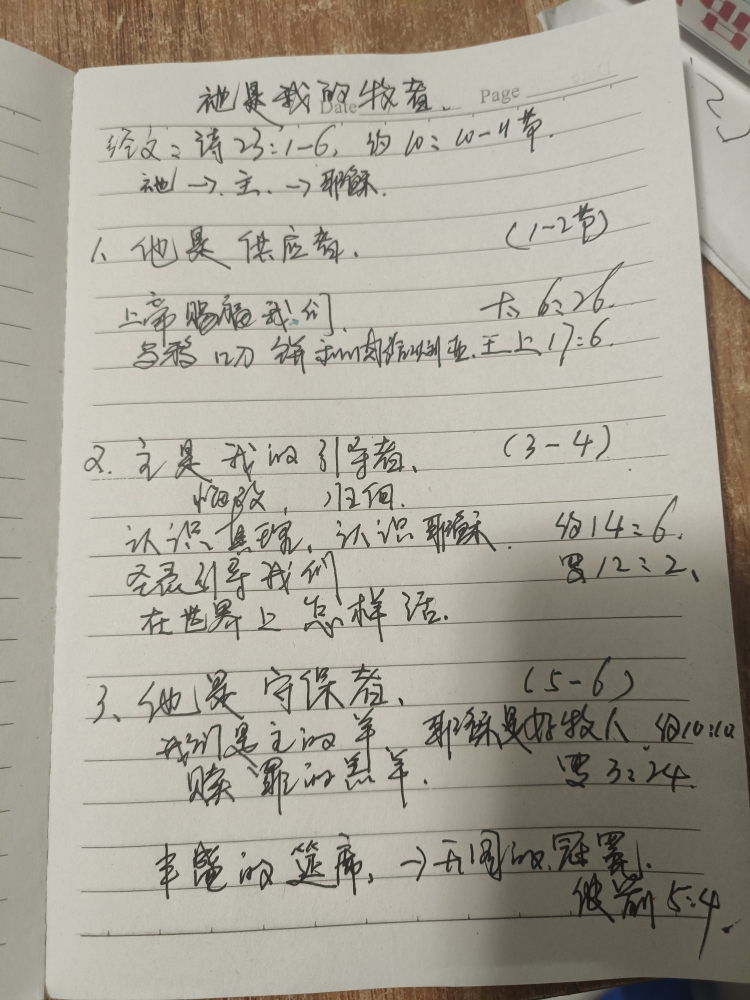 祂是我的牧者.
Date Page
经文: 诗23:1-6, 约10:10-11节.
祂→主.→耶稣.
1、他是供应者. (1-2节)
上帝赐福我们. 太6:26.
乌鸦叼饼和肉给以利亚. 王上17:6.
2. 主是我的引导者、 (3-4)
悔改, 归回.
认识真理, 认识耶稣. 约14:6.
圣灵引导我们 罗12:2、
在世界上怎样活.
3、他是守保者、 (5-6)
我们是主的羊 耶稣是好牧人. 约10:10
赎罪的羔羊. 罗3:24.
丰盛的筵席, →天国的冠冕.
彼前5:4.